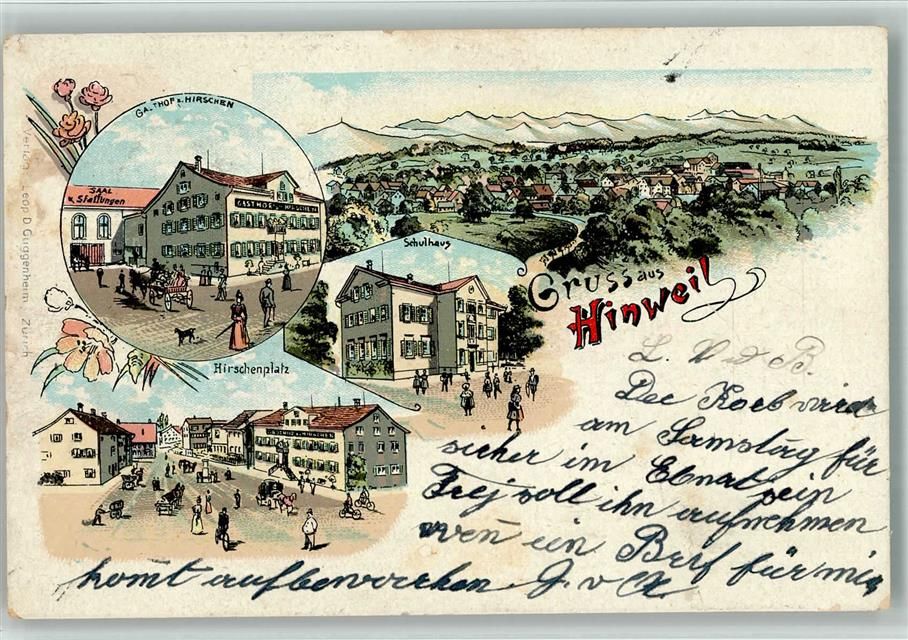 GASTHOF z. HIRSCHEN
SAAL
u. Stallungen
GASTHOF zum HIRSCHEN
Schulhaus
Gruss aus
Hinweil
Hirschenplatz
Verlag Leop D Guggenheim, Zürich
L. V d B.
Der Korb wird
am Samstag für
sicher im Ebnat sein
Frej soll ihn aufnehmen
wen̄ ein Brif für mic
komt aufbewarhen J. v A